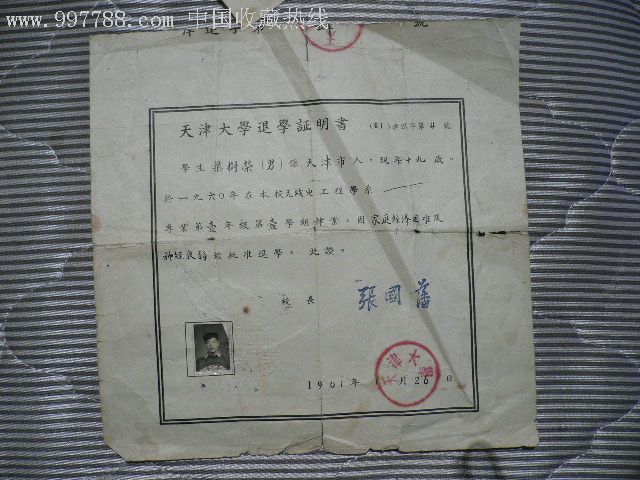 www.997788.com 中国收藏热线
號
天津大學退學証明書 (61)津退字第4號
學生梁樹榮(男)係天津市人，現年十九歲。
於一九六〇年在本校无线电工程學系
專業第壹年級第壹學期肄業。因家庭經济困难及
神經衰弱經批准退學。此證。
校長 張國藩
天津大學
1961年 月26日